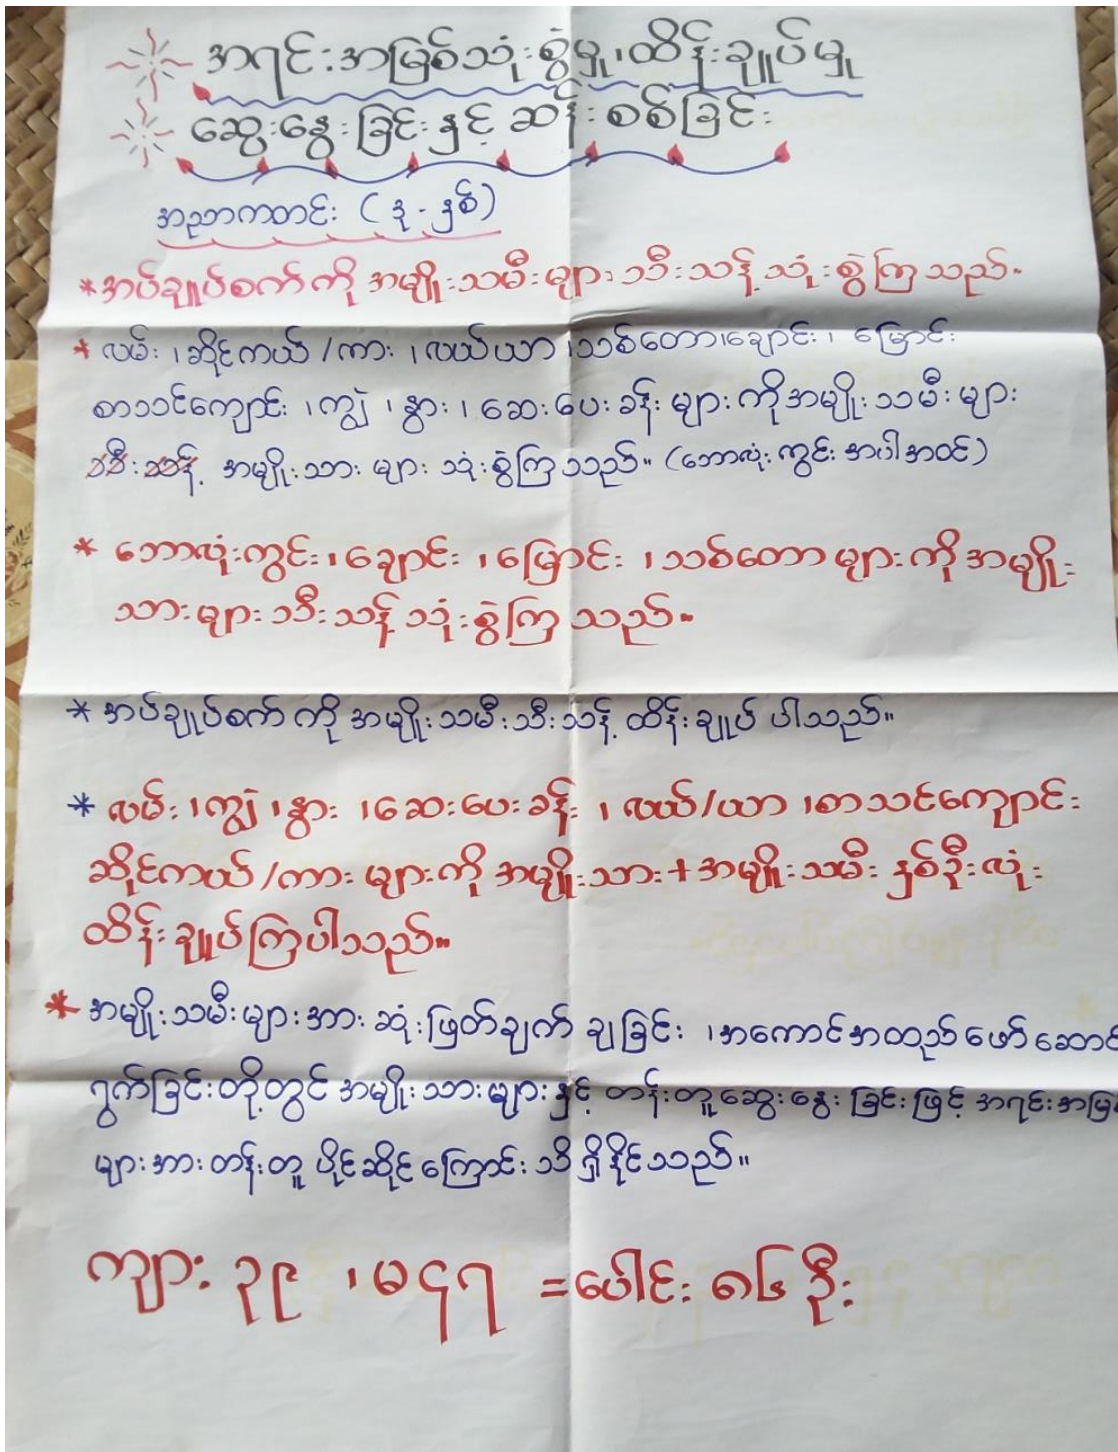 အရင်းအမြစ်သုံးစွဲမှု၊ထိန်းချုပ်မှု
ဆွေးနွေးခြင်းနှင့် ဆန်းစစ်ခြင်း
အညာကတင်း (ဒု-နှစ်)
*အပ်ချုပ်စက်ကို အမျိုးသမီးများသီးသန့်သုံးစွဲကြသည်။
* လမ်း ၊ဆိုင်ကယ် /ကား ၊လယ်ယာ ၊သစ်တော၊ချောင်း ၊ မြောင်း
စာသင်ကျောင်း ၊ကျွဲ ၊နွား ၊ ဆေးပေးခန်း များကိုအမျိုးသမီးများ
သီးသန့် အမျိုးသား များ သုံးစွဲကြသည်။ (ဘောလုံးကွင်း အပါအဝင်)
* ဘောလုံးကွင်း ၊ချောင်း ၊မြောင်း ၊သစ်တော များကို အမျိုး
သားများ သီးသန့် သုံးစွဲကြ သည်။
* အပ်ချုပ်စက် ကို အမျိုးသမီးသီးသန့် ထိန်းချုပ် ပါသည်။
* လမ်း ၊ကျွဲ ၊နွား ၊ဆေးပေးခန်း ၊ လယ်/ယာ ၊စာသင်ကျောင်း
ဆိုင်ကယ်/ကား များကို အမျိုးသား+အမျိုးသမီး နှစ်ဦးလုံး
ထိန်းချုပ်ကြပါသည်။
* အမျိုးသမီးများအား ဆုံးဖြတ်ချက် ချခြင်း ၊အကောင်အထည်ဖော် ဆောင်
ရွက်ခြင်းတို့တွင် အမျိုးသားများနှင့် တန်းတူဆွေးနွေးခြင်းဖြင့် အရင်းအမြစ်
များအား တန်းတူ ပိုင်ဆိုင်ကြောင်း သိရှိနိုင်သည်။
ကျား ၃၉ ၊မ ၄၇ =ပေါင်း ၈၆ ဦး